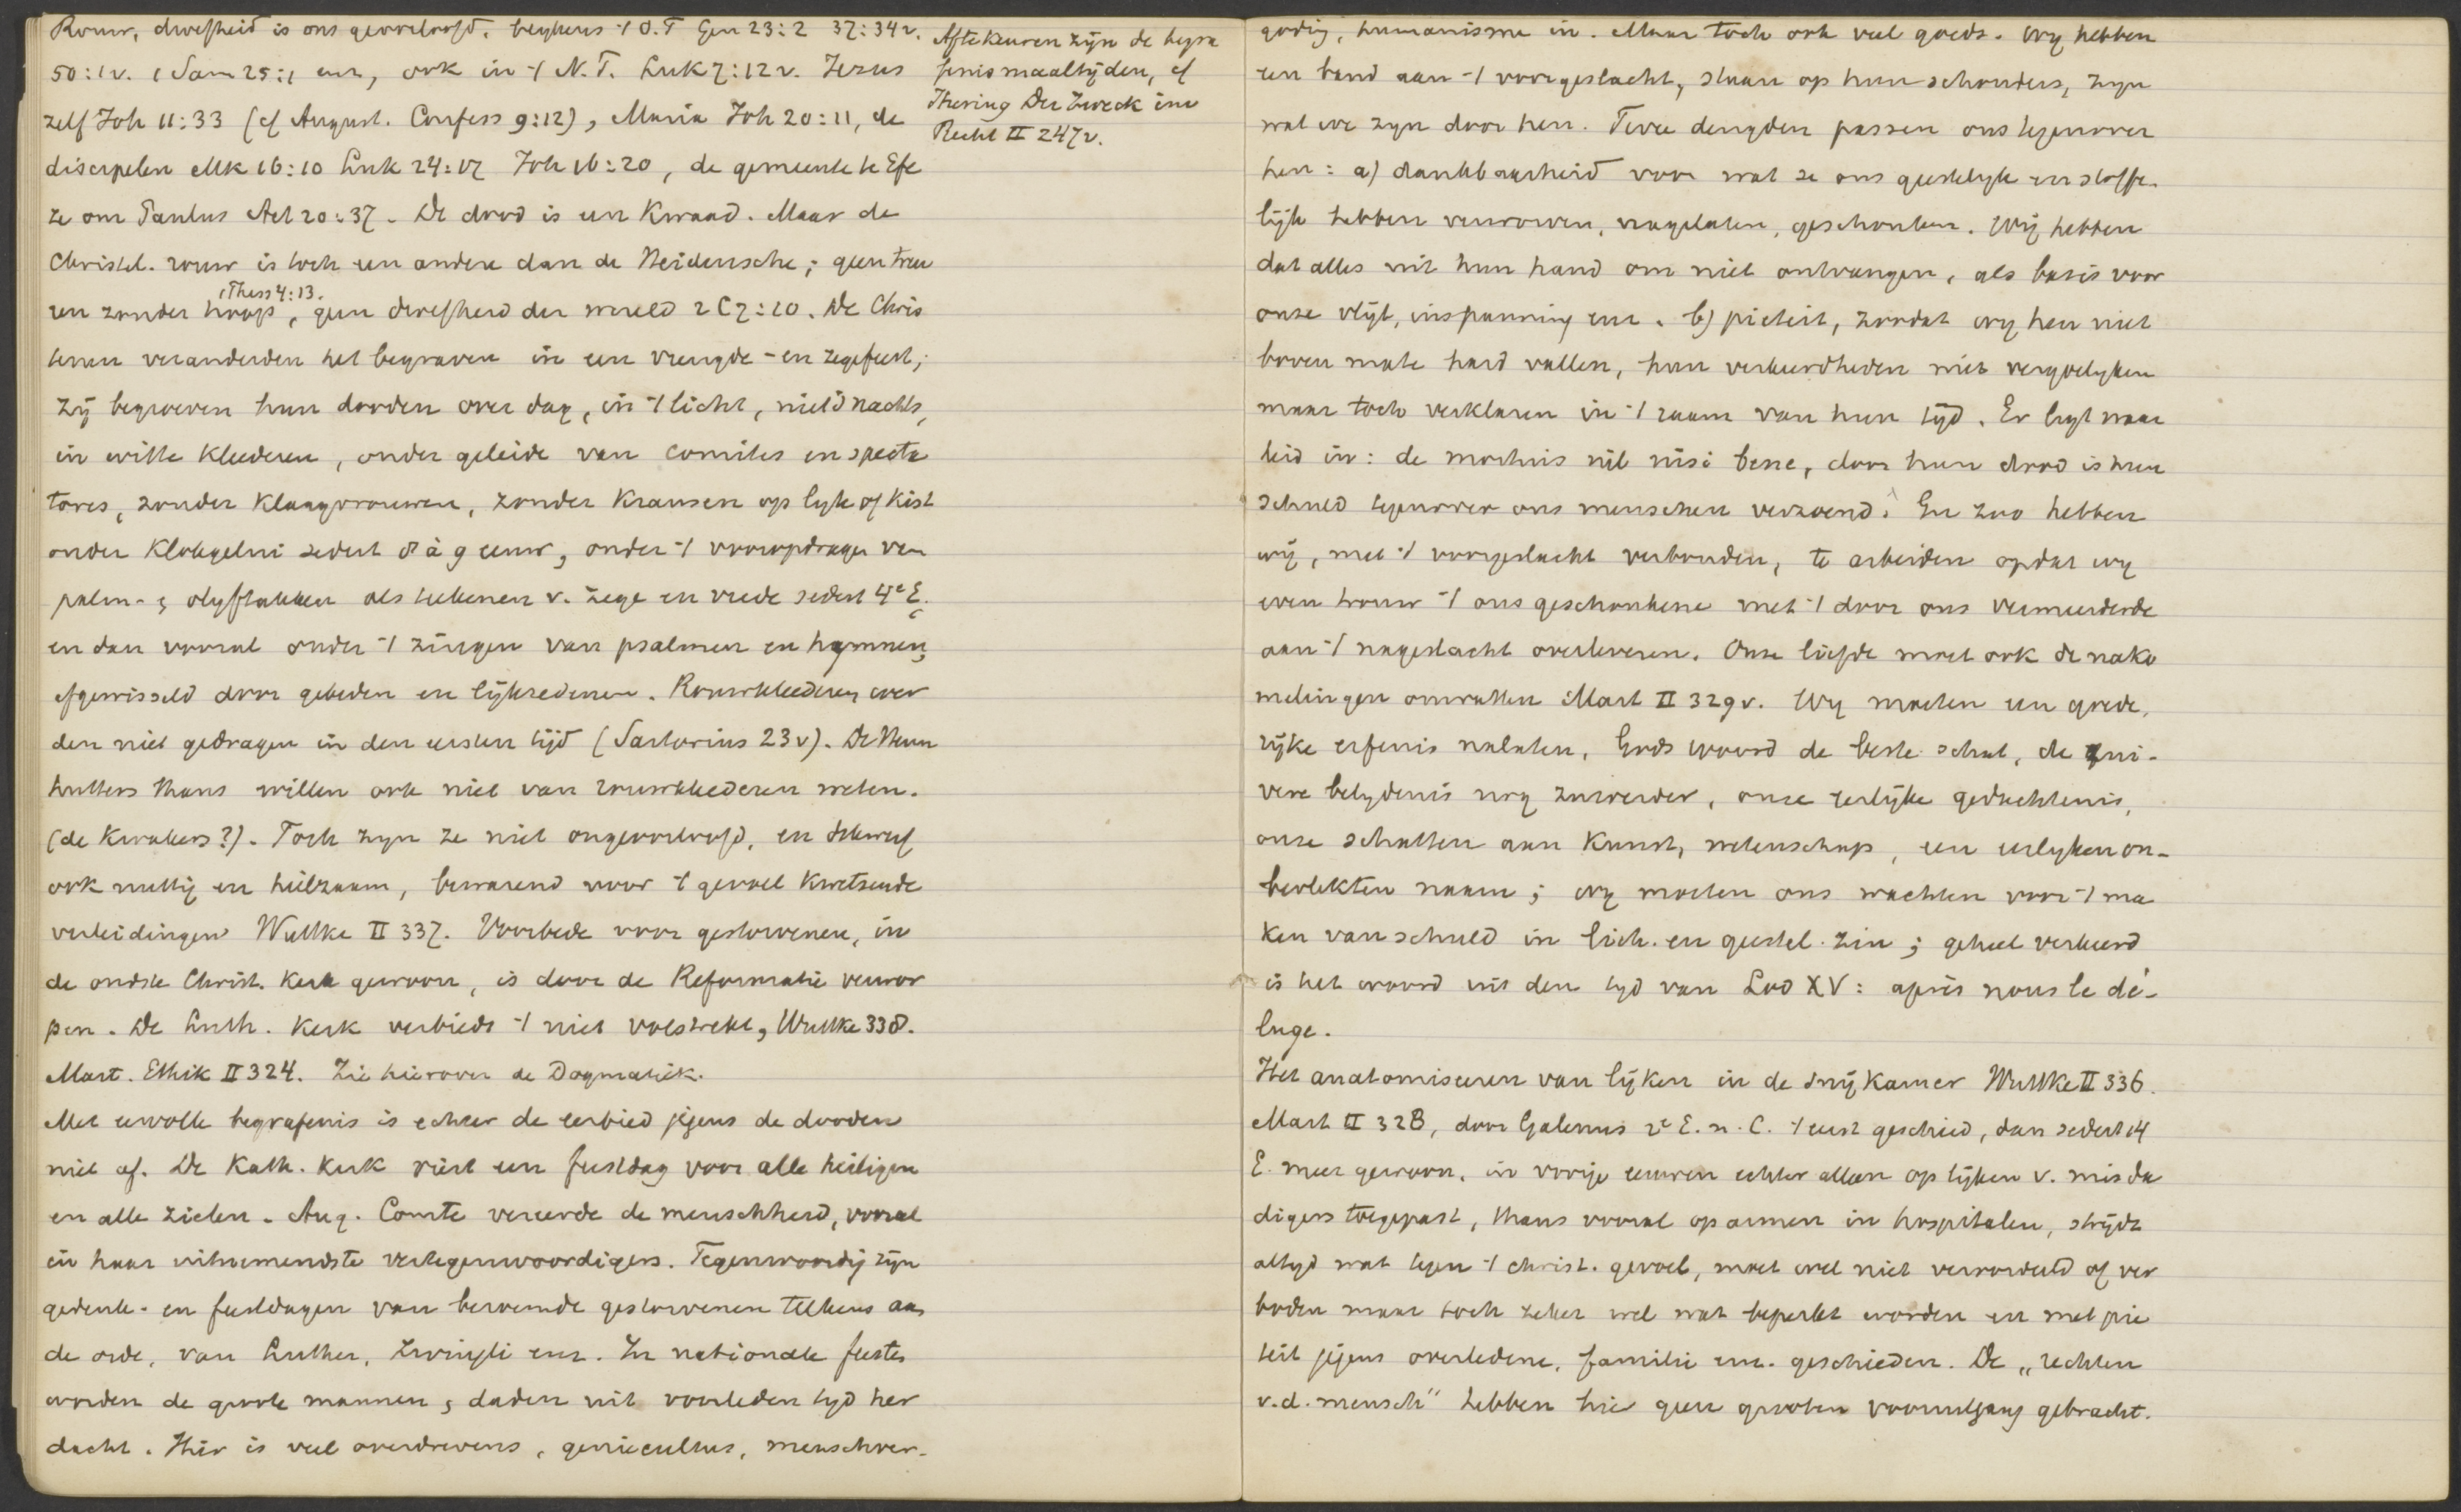 Rouw, droefheid is ons geoorloofd, blijkens 't O.T Gen 23:2 37:34v.
50:1v. 1 Sam 25:1 enz, ook in 't N.T. Luk 7:12v. Jezus
zelf Joh 11:33 (cf August. Confess 9:12), Maria Joh 20:11, de
discipelen Mk 16:10 Luk 24:17 Joh 16:20, de gemeente te Efe
ze om Paulus Act 20:37. De dood is een kwaad. Maar de
Christel. rouw is toch een andere dan de Heidensche; geen treu
1 Thess 4:13.
ren zonder hoop, geen droefheid der wereld 2 C 7:10. De Chris
tenen veranderden het begraven in een vreugde- en zegefeest;
zij begroeven hun dooden over dag, in 't licht, niet 's nachts,
in witte kleederen, onder geleide van comites en specta
tores, zonder klaagvrouwen, zonder kransen op lijk of kist
onder klokgelui sedert 8 à 9 eeuw, onder 't vooropdragen van
palm- & olijftakken als teekenen v. zege en vrede sedert 4e E.
en dan vooral onder 't zingen van psalmen en hymnen,
afgewisseld door gebeden en lijkredenen. Rouwkleederen wer
den niet gedragen in den eersten tijd (Sartorius 23v). De Hern
hutters thans willen ook niet van rouwkleederen weten.
(de Kwakers?). Toch zijn ze niet ongeoorloofd, en
ook nuttig en heilzaam, bewarend voor 't gevoel kwetsende
verleidingen Wuttke II 337. Voorbede voor gestorvenen, in
de oudste Christ. kerk gewoon, is door de Reformatie verwor
pen. De Luth. kerk verbiedt 't niet volstrekt, Wuttke 338.
Mart. Ethik II 324. Zie hierover de Dogmatiek.
Met eervolle begrafenis is echter de eerbied jegens de dooden
niet af. De Kath. kerk viert een feestdag voor alle heiligen
en alle zielen. Aug. Comte vereerde de menschheid, vooral
in haar uitnemendste vertegenwoordigers. Tegenwoordig zijn
gedenk- en feestdagen van beroemde gestorvenen telkens aan
de orde, van Luther, Zwingli enz. In nationale feesten
worden de groote mannen & daden uit voorleden tijd her
dacht. Hier is veel overdrevens, geniecultus, menschver-
Afte keuren zijn de begra
fenismaaltijden, cf
Jhering Der Zweck im
Recht II 247v.
goding, humanisme in. Maar toch ook veel goeds. Wij hebben
een band aan 't voorgeslacht, staan op hun schouders, zijn
wat we zijn door hen. Twee deugden passen ons tegenover
hen: a) dankbaarheid voor wat ze ons geestelijk en stoffe-
lijk hebben verworven, nagelaten, geschonken. Wij hebben
dat alles uit hun hand om niet ontvangen, als basis voor
onze vlijt, inspanning enz. b) pieteit, zoodat wij hen niet
boven mate hard vallen, hun verkeerdheden niet vergoelijken
maar toch verklaren in 't raam van hun tijd. Er ligt waar
heid in: de mortuis nil nisi bene, door hun dood is hun
schuld tegenover ons menschen verzoend. En zoo hebben
wij, met 't voorgeslacht verbonden, te arbeiden opdat wij
even trouw 't ons geschonkene met 't door ons vermeerderde
aan 't nageslacht overleveren. Onze liefde moet ook de nako
melingen omvatten Mart II 329v. Wij moeten een goede,
rijke erfenis nalaten, Gods woord de beste schat, de zui-
vere belijdenis nog zuiverder, onze eerlijke gedachtenis,
onze schatten aan kunst, wetenschap, een eerlijken on-
bevlekten naam; wij moeten ons wachten voor 't ma
ken van schuld in lich. en geestel. zin; geheel verkeerd
is het woord uit den tijd van Lod XV: après nous le dé-
luge.
Het anatomiseeren van lijken in de snijkamer Wuttke II 336.
Mart II 328, door Galenus 2e E. n. C. 't eerst geschied, dan sedert 14
E. meer gewoon, in vorige eeuwen echter alleen op lijken v. misda
digers toegepast, thans vooral op armen in hospitalen, strijdt
altijd wat tegen 't christ. gevoel, moet wel niet veroordeeld of ver
boden maar toch zeker wel wat beperkt worden en met pie
teit jegens overledene, familie enz. geschieden. De „rechten
v.d. mensch" hebben hier geen grooten vooruitgang gebracht.